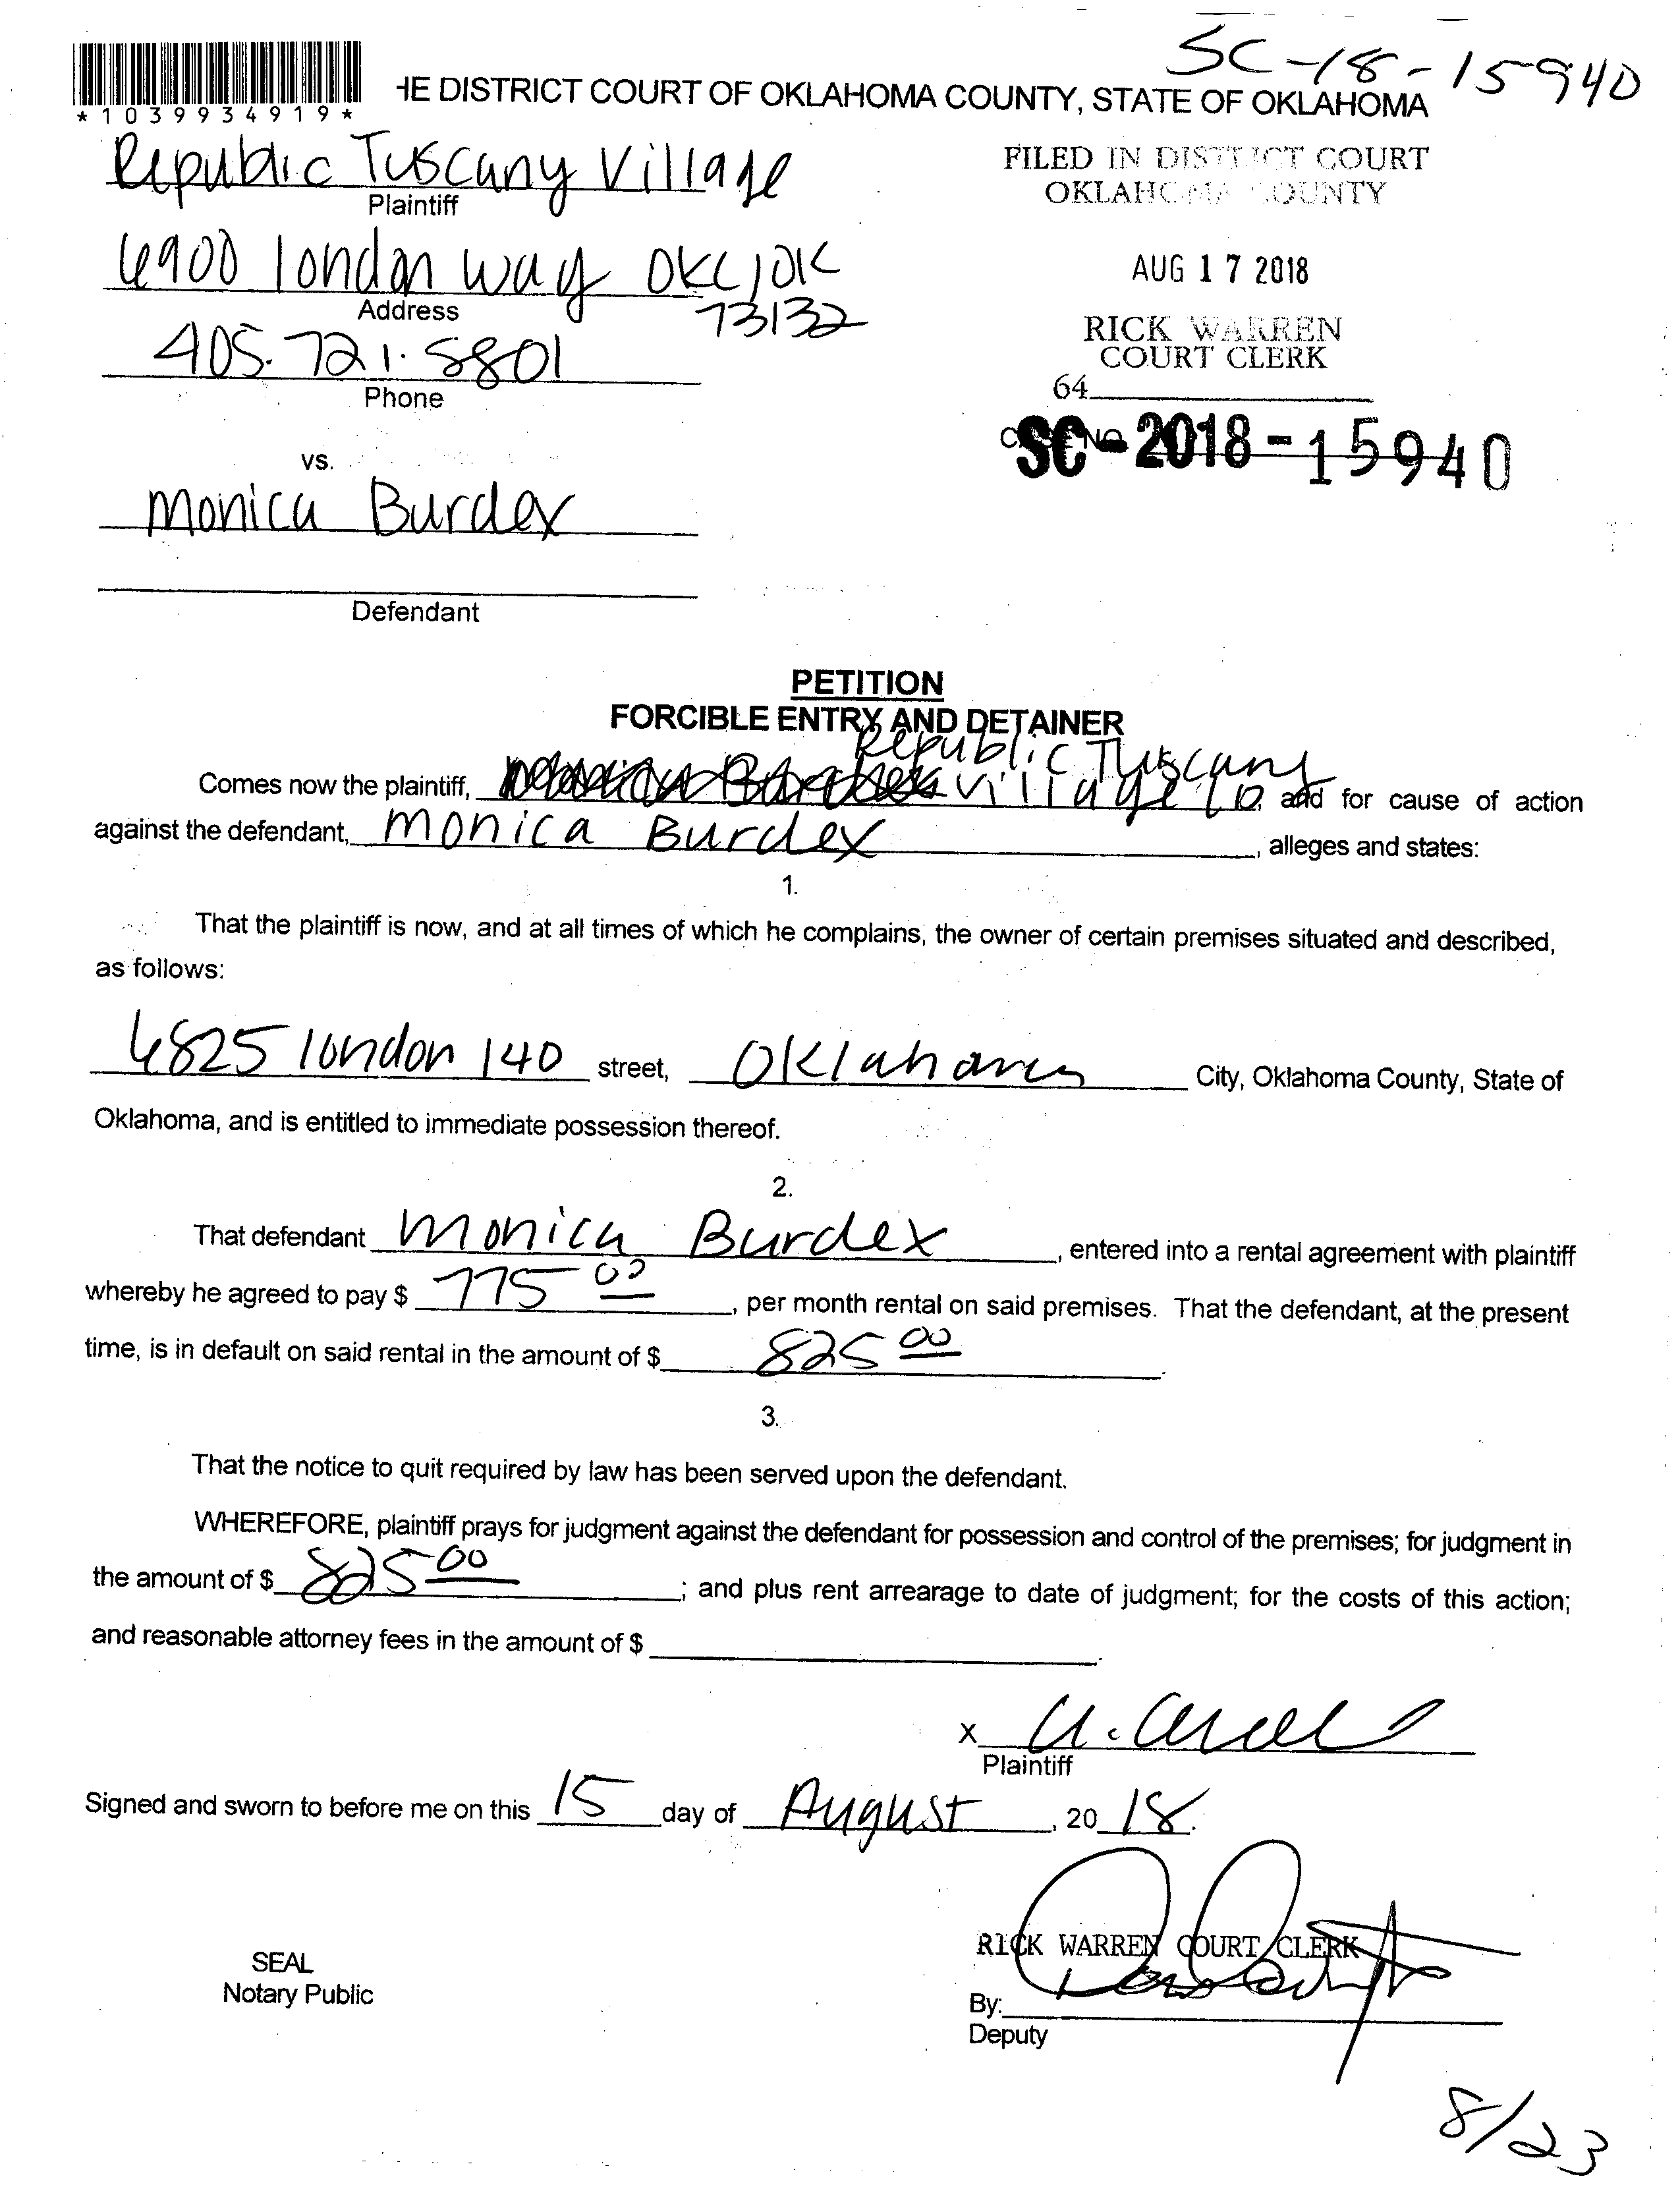 SC-18-15940
*1039934919*
HE DISTRICT COURT OF OKLAHOMA COUNTY, STATE OF OKLAHOMA
Republic Tuscany Village
Plaintiff
FILED IN DISTRICT COURT
OKLAHOMA COUNTY
6900 london way OKC, OK
73132
Address
AUG 17 2018
405.721.5801
Phone
RICK WARREN
COURT CLERK
64
SC-2018-15940
vs.
Monica Burdex
Defendant
PETITION
FORCIBLE ENTRY AND DETAINER
Republic Tuscany
Comes now the plaintiff, Village, and for cause of action
against the defendant, Monica Burdex, alleges and states:
1.
That the plaintiff is now, and at all times of which he complains, the owner of certain premises situated and described,
as follows:
6825 london 140 street, Oklahoma City, Oklahoma County, State of
Oklahoma, and is entitled to immediate possession thereof.
2.
That defendant Monica Burdex, entered into a rental agreement with plaintiff
whereby he agreed to pay $ 775 00, per month rental on said premises. That the defendant, at the present
time, is in default on said rental in the amount of $ 825 00.
3.
That the notice to quit required by law has been served upon the defendant.
WHEREFORE, plaintiff prays for judgment against the defendant for possession and control of the premises; for judgment in
the amount of $ 825 00; and plus rent arrearage to date of judgment; for the costs of this action;
and reasonable attorney fees in the amount of $ .
X
Plaintiff
Signed and sworn to before me on this 15 day of August, 20 18.
RICK WARREN COURT CLERK
SEAL
Notary Public
By:
Deputy
8/23